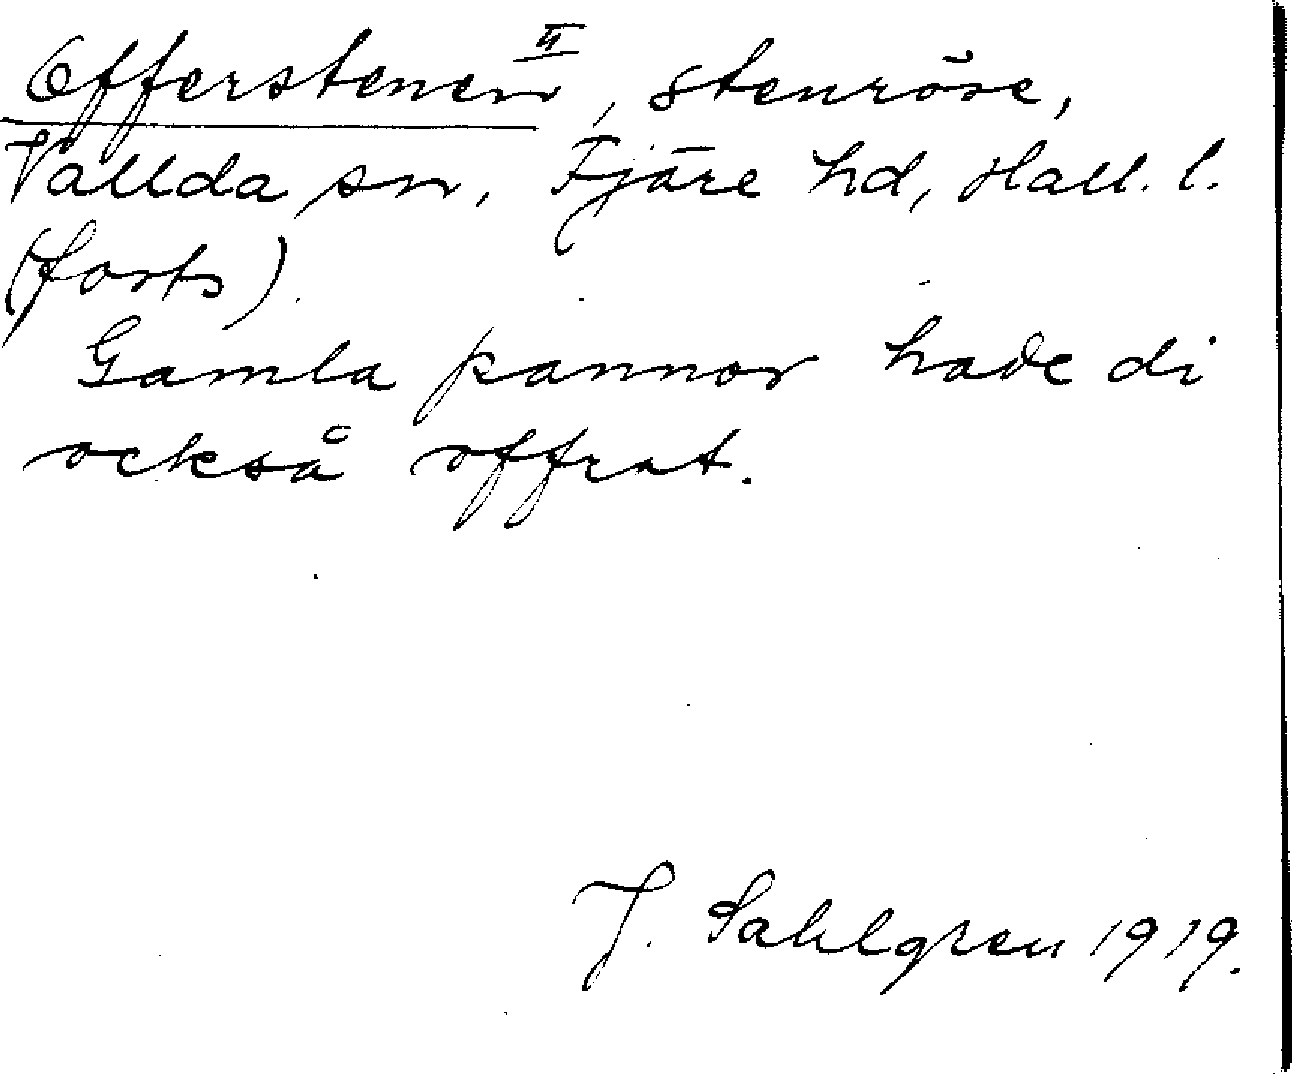 Offerstenen II, stenröse,
Vallda sn, Fjäre hd, Hall. l.
(forts).
Gamla pannor hade di
också offrat.
J. Sahlgren 1919.